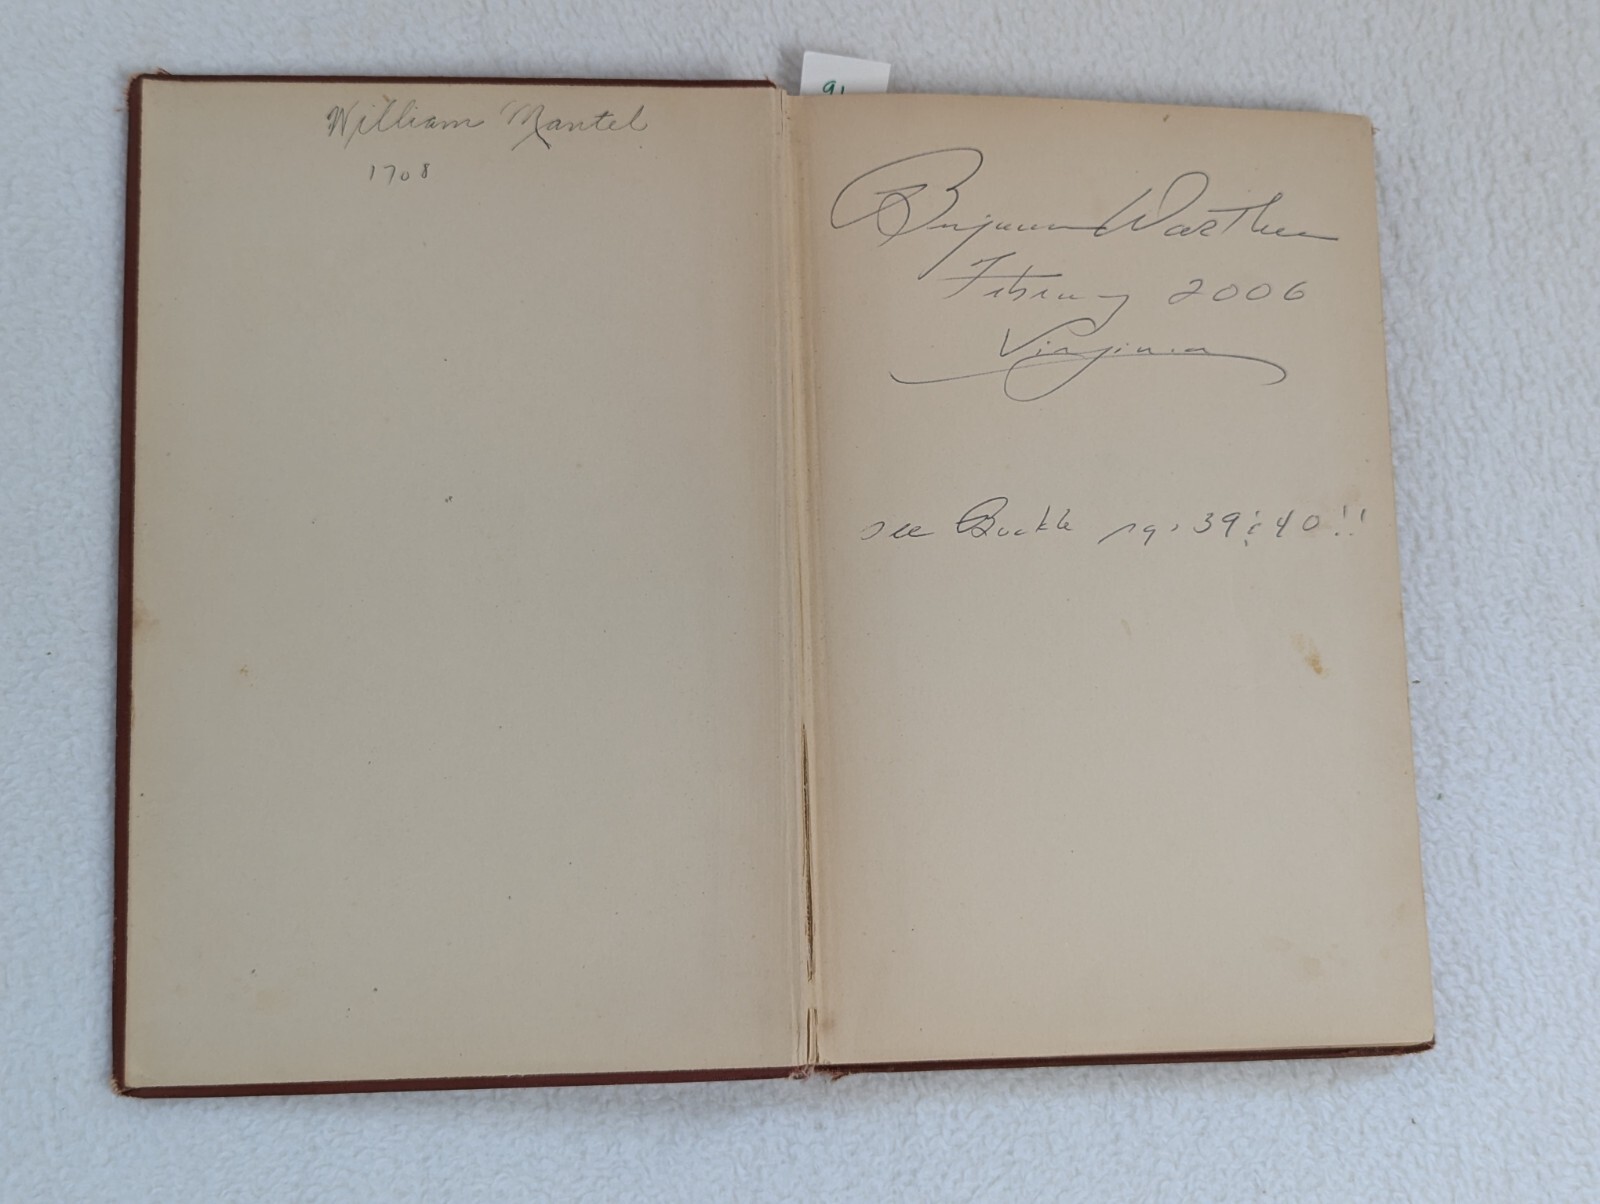 William Mantel
1708
91
Benjamin Warthen
February 2006
Virginia
see Buckle pgs 39 & 40!!